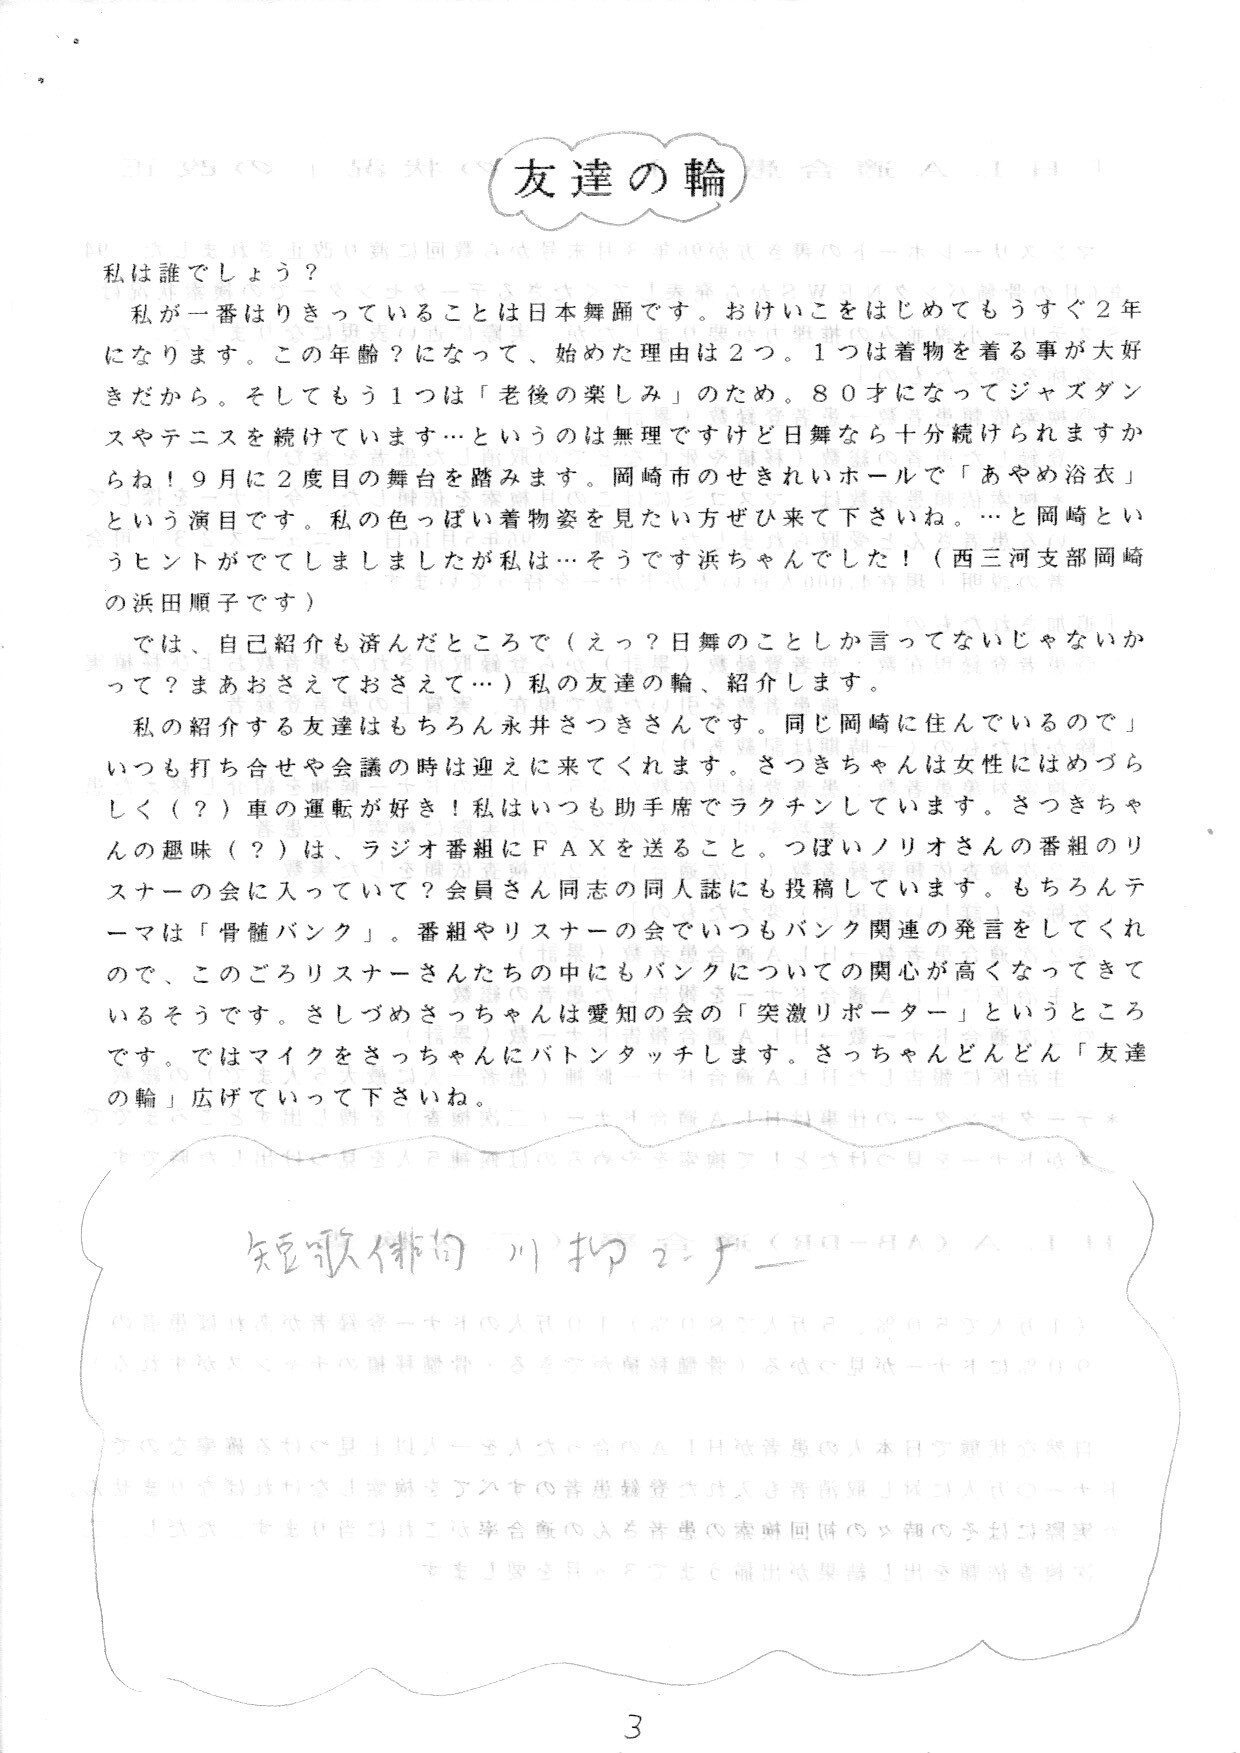 友達の輪
私は誰でしょう？
私が一番はりきっていることは日本舞踊です。おけいこをはじめてもうすぐ２年
になります。この年齢？になって、始めた理由は２つ。１つは着物を着る事が大好
きだから。そしてもう１つは「老後の楽しみ」のため。８０才になってジャズダン
スやテニスを続けています…というのは無理ですけど日舞なら十分続けられますか
らね！９月に２度目の舞台を踏みます。岡崎市のせきれいホールで「あやめ浴衣」
という演目です。私の色っぽい着物姿を見たい方ぜひ来て下さいね。…と岡崎とい
うヒントがでてしましましたが私は…そうです浜ちゃんでした！（西三河支部岡崎
の浜田順子です）
では、自己紹介も済んだところで（えっ？日舞のことしか言ってないじゃないか
って？まあおさえておさえて…）私の友達の輪、紹介します。
私の紹介する友達はもちろん永井さつきさんです。同じ岡崎に住んでいるので」
いつも打ち合せや会議の時は迎えに来てくれます。さつきちゃんは女性にはめづら
しく（？）車の運転が好き！私はいつも助手席でラクチンしています。さつきちゃ
んの趣味（？）は、ラジオ番組にＦＡＸを送ること。つぼいノリオさんの番組のリ
スナーの会に入っていて？会員さん同志の同人誌にも投稿しています。もちろんテ
ーマは「骨髄バンク」。番組やリスナーの会でいつもバンク関連の発言をしてくれ
ので、このごろリスナーさんたちの中にもバンクについての関心が高くなってきて
いるそうです。さしづめさっちゃんは愛知の会の「突激リポーター」というところ
です。ではマイクをさっちゃんにバトンタッチします。さっちゃんどんどん「友達
の輪」広げていって下さいね。
短歌俳句 川柳コーナー
3